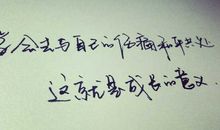 会去与自己的伤痛和平共处
这就是成长的意义.